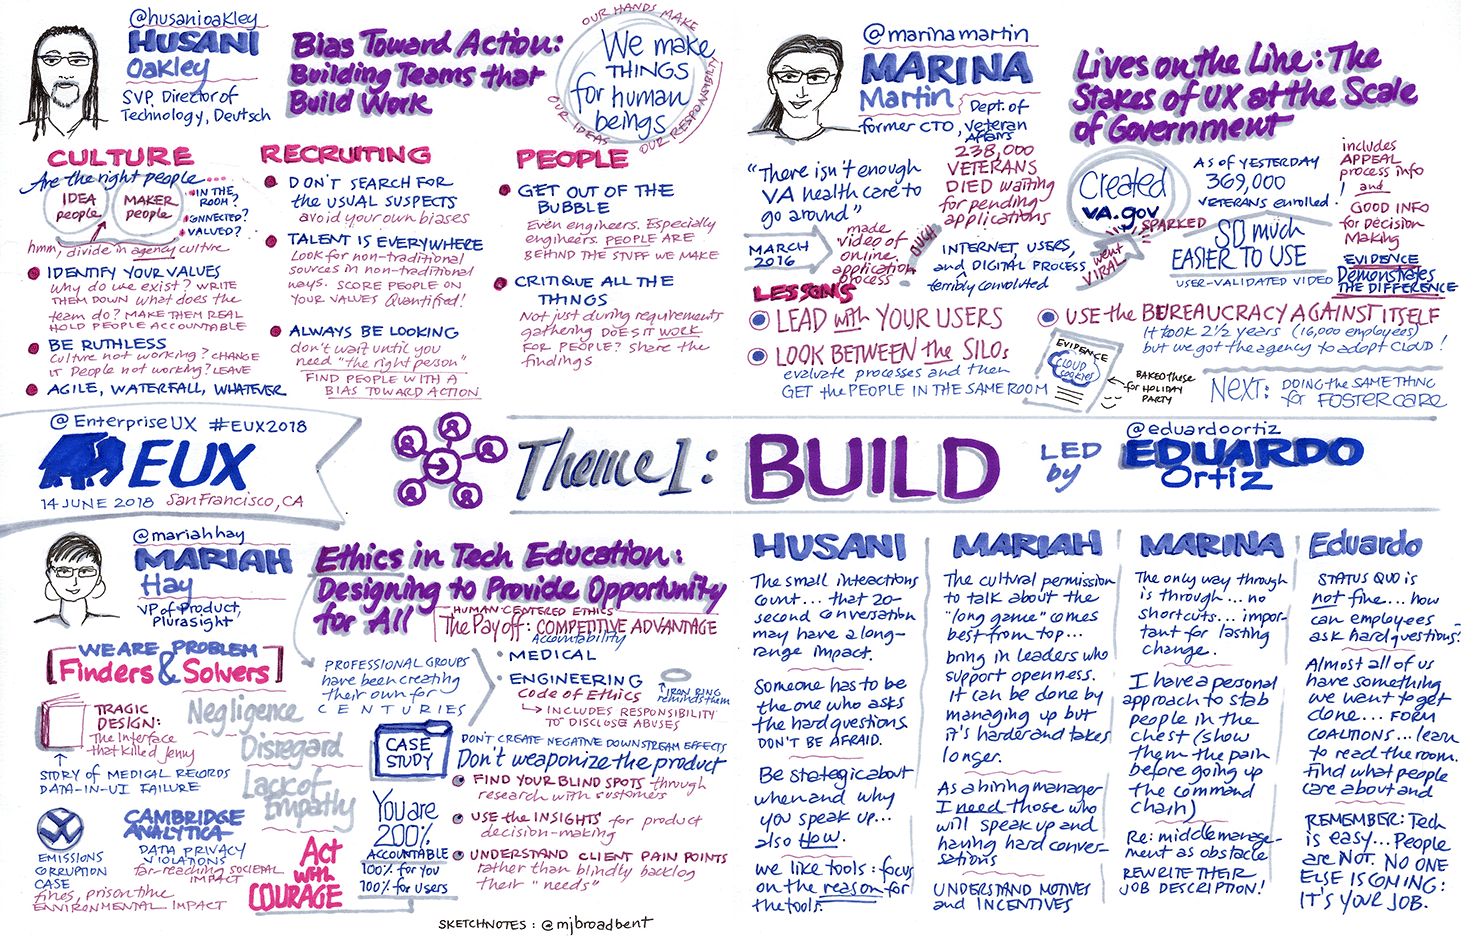 @husanioakley
HUSANI
Oakley
SVP, Director of
Technology, Deutsch
Bias Toward Action:
Building Teams that
Build Work
OUR HANDS MAKE
OUR IDEAS
OUR RESPONSIBILITY
We make
THINGS
for human
beings
CULTURE
Are the right people...
IDEA
people
MAKER
people
IN THE
ROOM?
CONNECTED?
VALUED?
hmm, divide in agency culture
IDENTIFY YOUR VALUES
Why do we exist? WRITE
THEM DOWN what does the
team do? MAKE THEM REAL
HOLD PEOPLE ACCOUNTABLE
BE RUTHLESS
Culture not working? CHANGE
IT People not working? LEAVE
AGILE, WATERFALL, WHATEVER
RECRUITING
DON'T SEARCH FOR
the USUAL SUSPECTS
avoid your own biases
TALENT IS EVERYWHERE
Look for non-traditional
sources in non-traditional
ways. SCORE PEOPLE ON
YOUR VALUES Quantified!
ALWAYS BE LOOKING
don't wait until you
need "the right person"
FIND PEOPLE WITH A
BIAS TOWARD ACTION
PEOPLE
GET OUT OF THE
BUBBLE
Even engineers. Especially
engineers. PEOPLE ARE
BEHIND THE STUFF WE MAKE
CRITIQUE ALL THE
THINGS
Not just during requirements
gathering DOES IT WORK
FOR PEOPLE? Share the
findings
@marinamartin
MARINA
Martin
former CTO, Dept. of
Veteran
Affairs
Lives on the Line: The
Stakes of UX at the Scale
of Government
"There isn't enough
VA health care to
go around"
238,000
VETERANS
DIED waiting
for pending
applications
MARCH
2016
made
video of
online
application
process
OUCH
INTERNET, USERS,
and DIGITAL PROCESS
terribly convoluted
Created
VA.gov
SPARKED
went
VIRAL
AS OF YESTERDAY
369,000
VETERANS ENROLLED!
SO much
EASIER TO USE
USER-VALIDATED VIDEO
includes
APPEAL
process info
and
GOOD INFO
for Decision
Making
EVIDENCE
Demonstrates
THE DIFFERENCE
LESSONS
LEAD with YOUR USERS
LOOK BETWEEN the SILOs
evaluate processes and then
GET the PEOPLE IN THE SAME ROOM
USE the BUREAUCRACY AGAINST ITSELF
It took 2 1/2 years (16,000 employees)
but we got the agency to adopt CLOUD!
EVIDENCE
CLOUD
COOKIES
BAKED these
for HOLIDAY
PARTY
NEXT: DOING the SAME THING
for FOSTER CARE
@EnterpriseUX #EUX2018
EUX
14 JUNE 2018 San Francisco, CA
Theme 1: BUILD
LED
by
@eduardoortiz
EDUARDO
Ortiz
@mariahhay
MARIAH
Hay
VP of Product,
Pluralsight
Ethics in Tech Education:
Designing to Provide Opportunity
for All
HUMAN CENTERED ETHICS
The Payoff: COMPETITIVE ADVANTAGE
Accountability
WE ARE PROBLEM
Finders & Solvers
TRAGIC
DESIGN:
The Interface
that killed Jenny
STORY OF MEDICAL RECORDS
DATA-IN-UI FAILURE
Negligence
Disregard
Lack of
Empathy
EMISSIONS
CORRUPTION
CASE
fines, prison time
ENVIRONMENTAL IMPACT
CAMBRIDGE
ANALYTICA
DATA PRIVACY
VIOLATIONS
far-reaching SOCIETAL
IMPACT
Act
with
COURAGE
PROFESSIONAL GROUPS
have been creating
their own for
CENTURIES
MEDICAL
ENGINEERING
Code of Ethics
INCLUDES RESPONSIBILITY
TO DISCLOSE ABUSES
IRON RING
reminds them
CASE
STUDY
DON'T CREATE NEGATIVE DOWNSTREAM EFFECTS
Don't weaponize the product
FIND YOUR BLIND SPOTS through
research with customers
USE the INSIGHTS for product
decision-making
UNDERSTAND CLIENT PAIN POINTS
rather than blindly backlog
their "needs"
You are
200%
ACCOUNTABLE
100% for You
100% for users
SKETCHNOTES: @mjbroadbent
HUSANI
The small interactions
count... that 20-
second conversation
may have a long-
range impact.
Someone has to be
the one who asks
the hard questions.
DON'T BE AFRAID.
Be strategic about
when and why
you speak up...
also HOW.
we like tools: focus
on the reason for
the tools.
MARIAH
The cultural permission
to talk about the
"long game" comes
best from top...
bring in leaders who
support openness.
It can be done by
managing up but
it's harder and takes
longer.
As a hiring manager
I need those who
will speak up and
having hard conver-
sations
UNDERSTAND MOTIVES
and INCENTIVES
MARINA
The only way through
is through... no
shortcuts... impor-
tant for lasting
change.
I have a personal
approach to stab
people in the
chest (show
them the pain
before going up
the command
chain)
Re: middle manage-
ment as obstacle
REWRITE THEIR
JOB DESCRIPTION!
Eduardo
STATUS QUO is
not fine... how
can employees
ask hard questions?
Almost all of us
have something
we want to get
done... FORM
COALITIONS... learn
to read the room.
Find what people
care about and
REMEMBER: Tech
is easy... People
are NOT. NO ONE
ELSE IS COMING:
IT'S YOUR JOB.